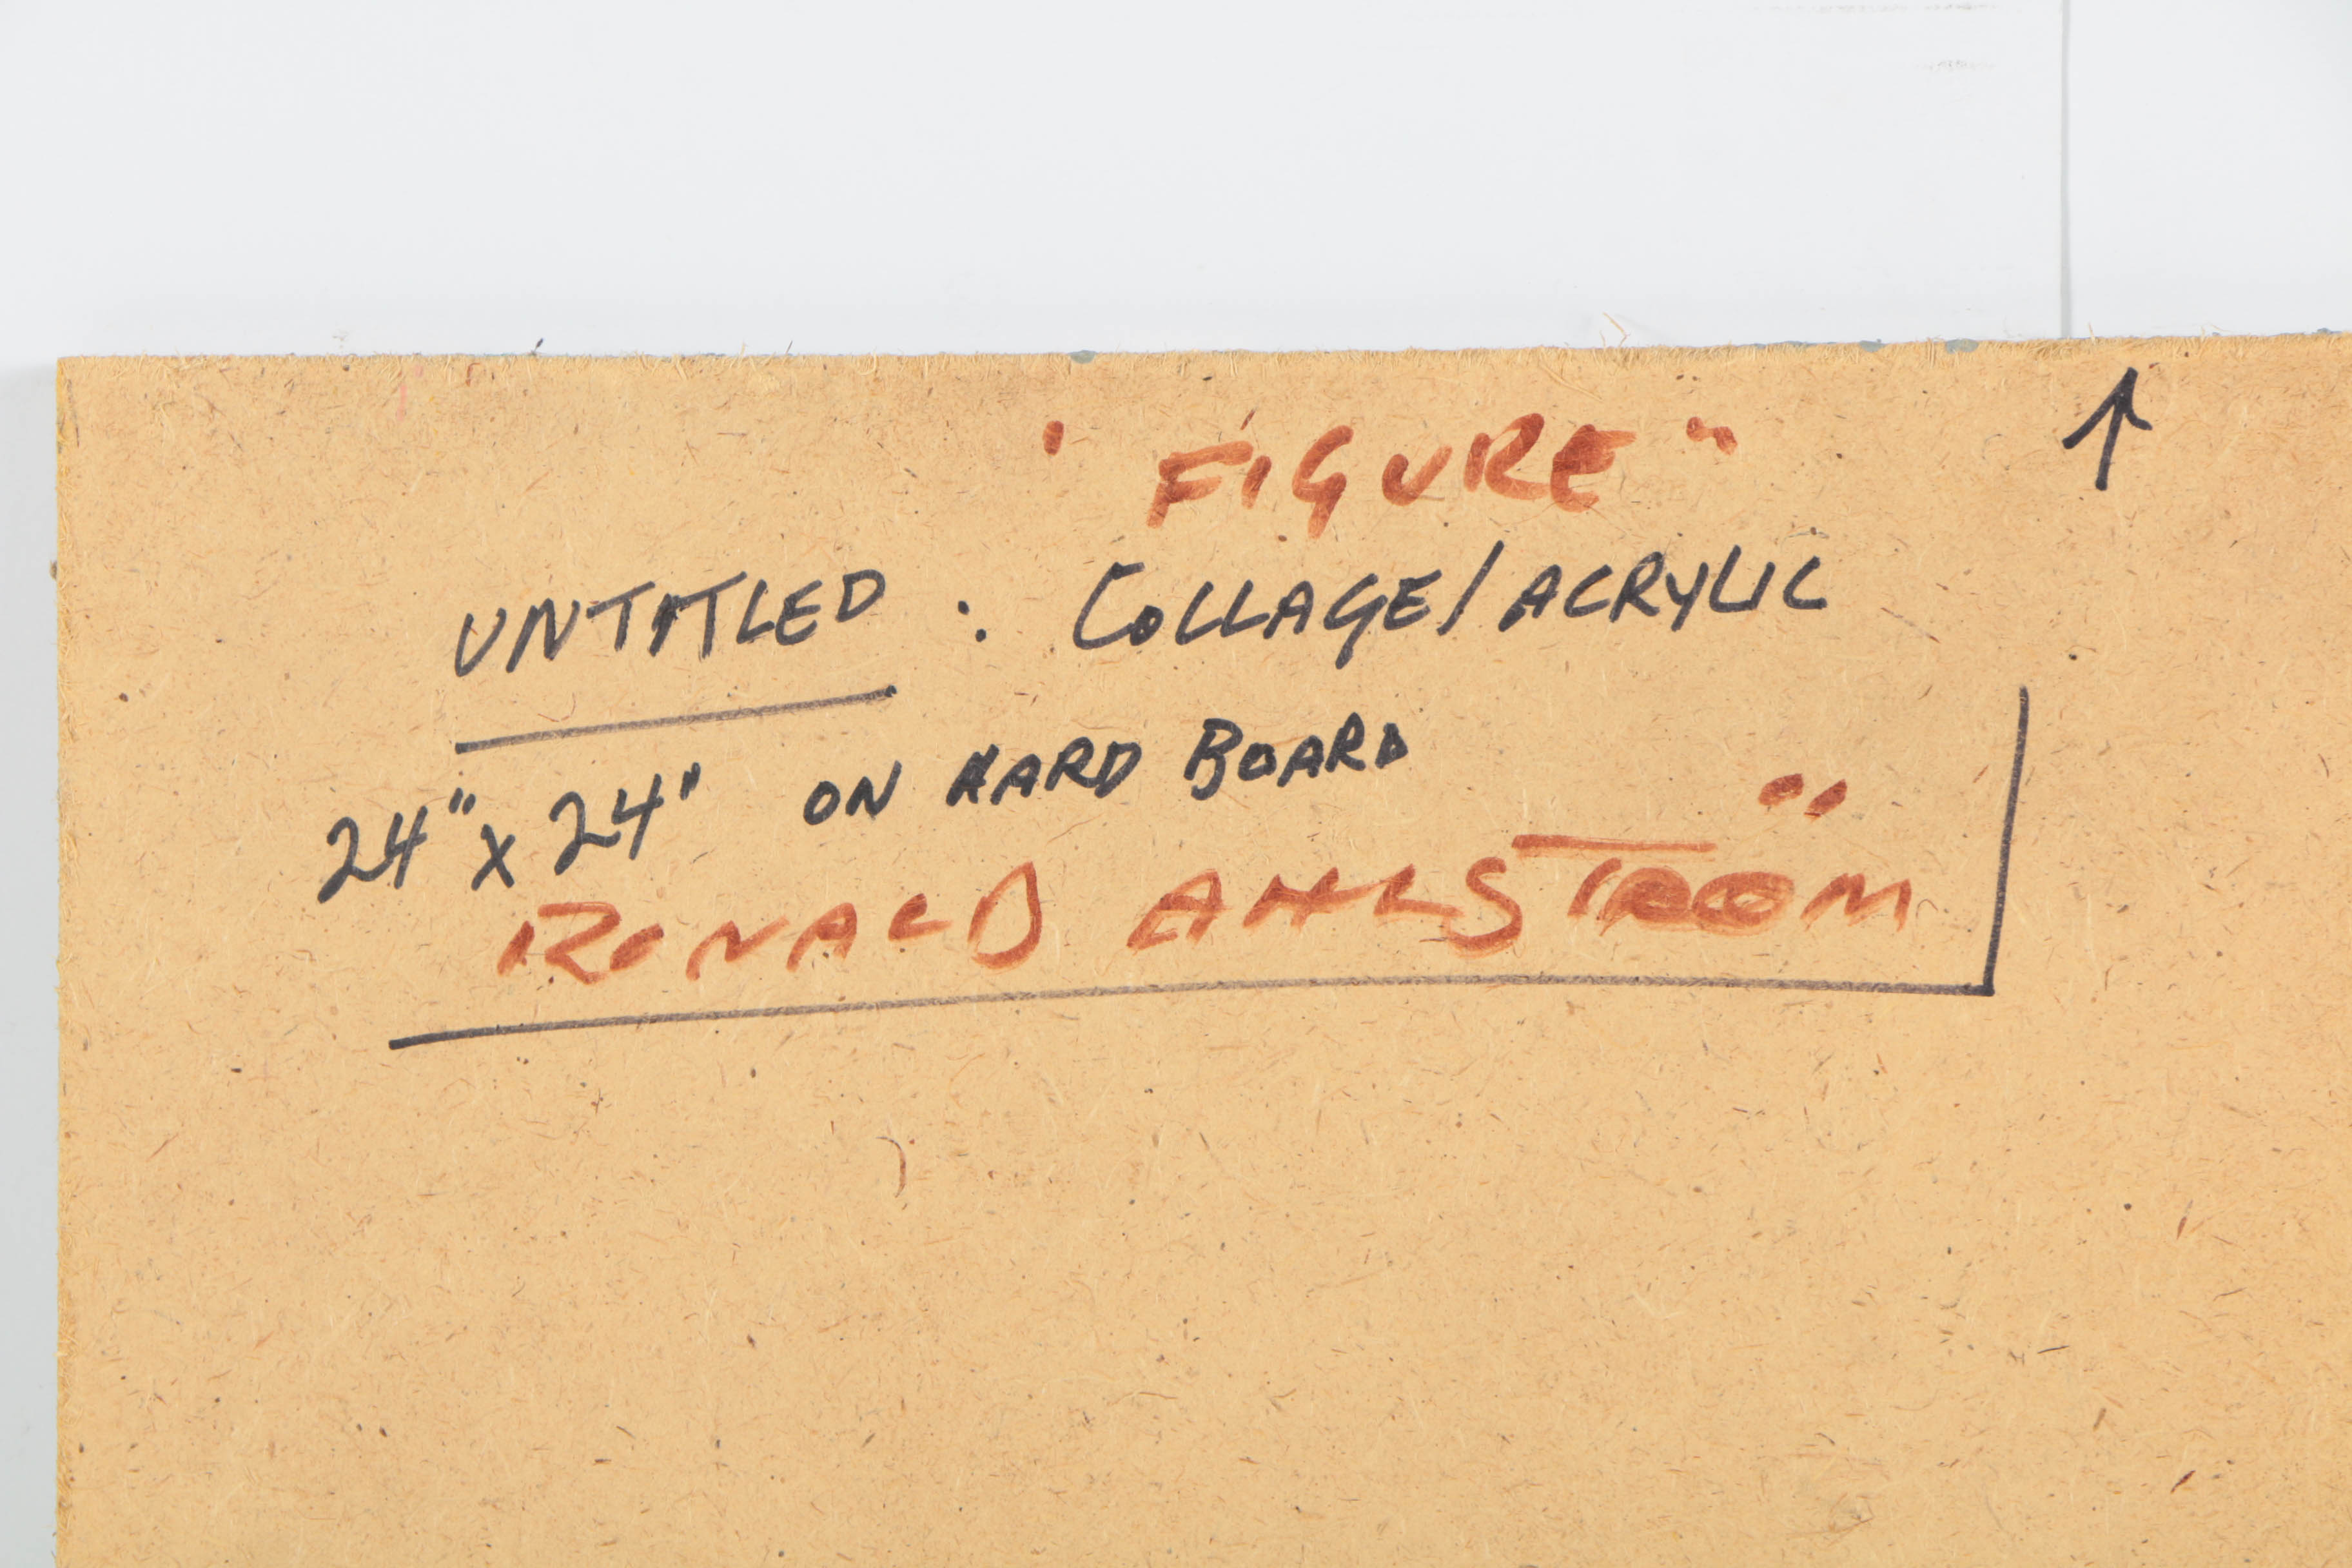 "FIGURE"
UNTITLED : COLLAGE/ACRYLIC
24" x 24" ON HARD BOARD
RONALD AHLSTRÖM